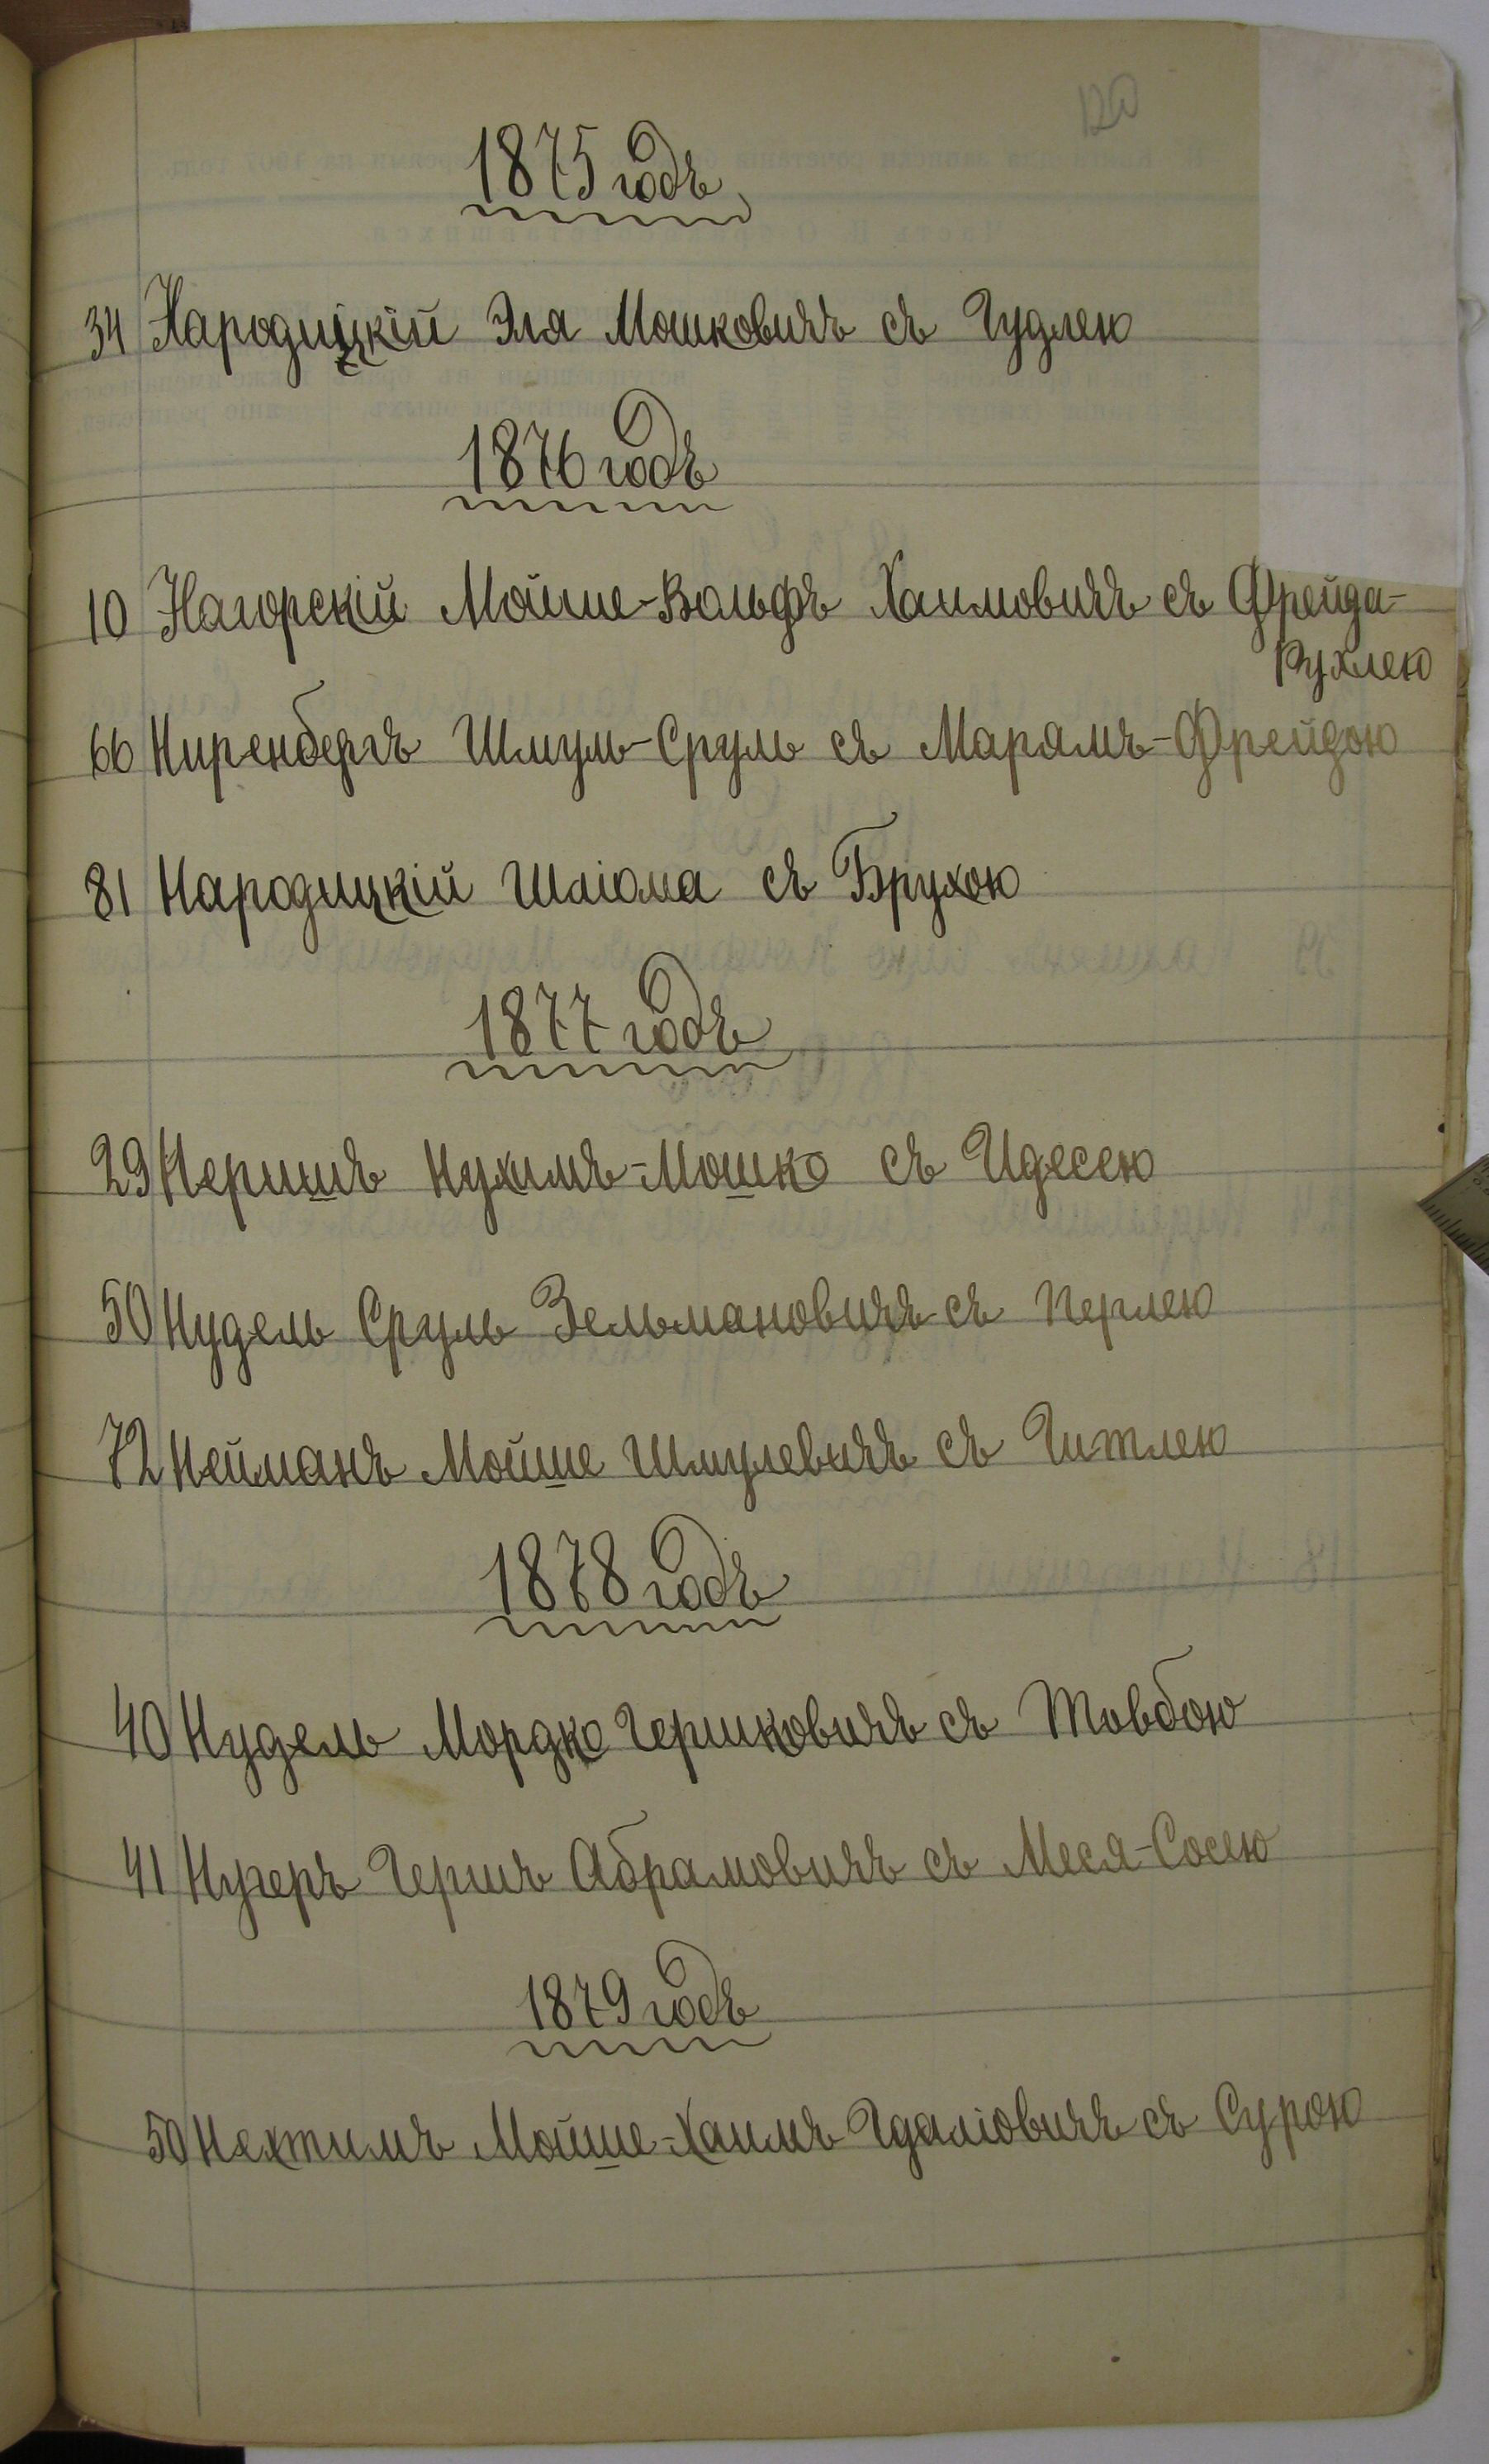 120
1875 годъ
34 Народицкій Эля Мошковичъ съ Гудлею
1876 годъ
10 Нагорскій Мойше-Вольфъ Хаимовичъ съ Фрейда-
Рухлею
66 Ниренбергъ Шмуль-Сруль съ Марямъ-Фрейдою
81 Народицкій Шліома съ Брухою
1877 годъ
29 Нершшъ Нухимъ-Мошко съ Идесею
50 Нудель Сруль Зельмановичъ съ Перлею
72 Нейманъ Мойше Шмулевичъ съ Гитлею
1878 годъ
40 Нудель Мордко Гершковичъ съ Товбою
41 Нугеръ Гершъ Абрамовичъ съ Меся-Сосею
1879 годъ
50 Нехтимъ Мойше-Хаимъ Гдаліовичъ съ Сурою